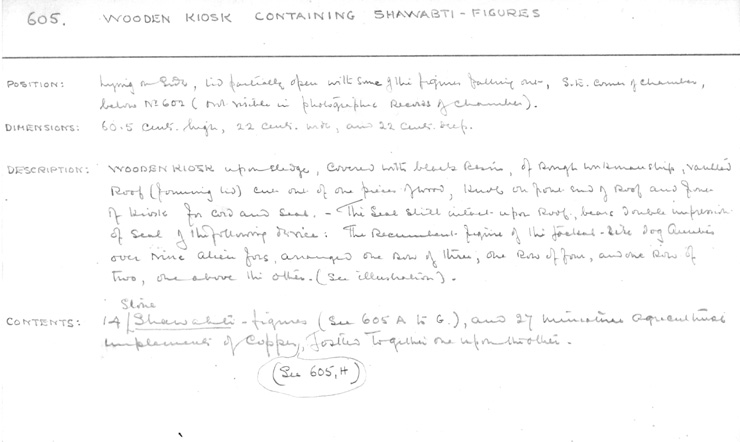 605. WOODEN KIOSK CONTAINING SHAWABTI-FIGURES
POSITION: Lying on side, lid partially open with some of the figures falling out, S.E. corner of chamber,
below Nº 602 (not visible in photographic records of chamber).
DIMENSIONS: 60.5 cents. high, 22 cents. wide, and 22 cents. deep.
DESCRIPTION: WOODEN KIOSK upon sledge, covered with black resin, of rough workmanship, vaulted
Roof (forming lid) cut out of one piece of wood, knob on fore end of roof and fore
of kiosk for cord and seal. - The seal still intact upon roof, bears double impression
of seal of the following device: The recumbent figure of the jackal-like dog Anubis
over nine alien foes, arranged one row of three, one row of four, and one row of
two, one above the other. (See illustration).
Stone
CONTENTS: 14/Shawabti-figures (See 605 A to G.), and 27 miniature agricultural
implements of copper, tied together one upon another.
(See 605, H)